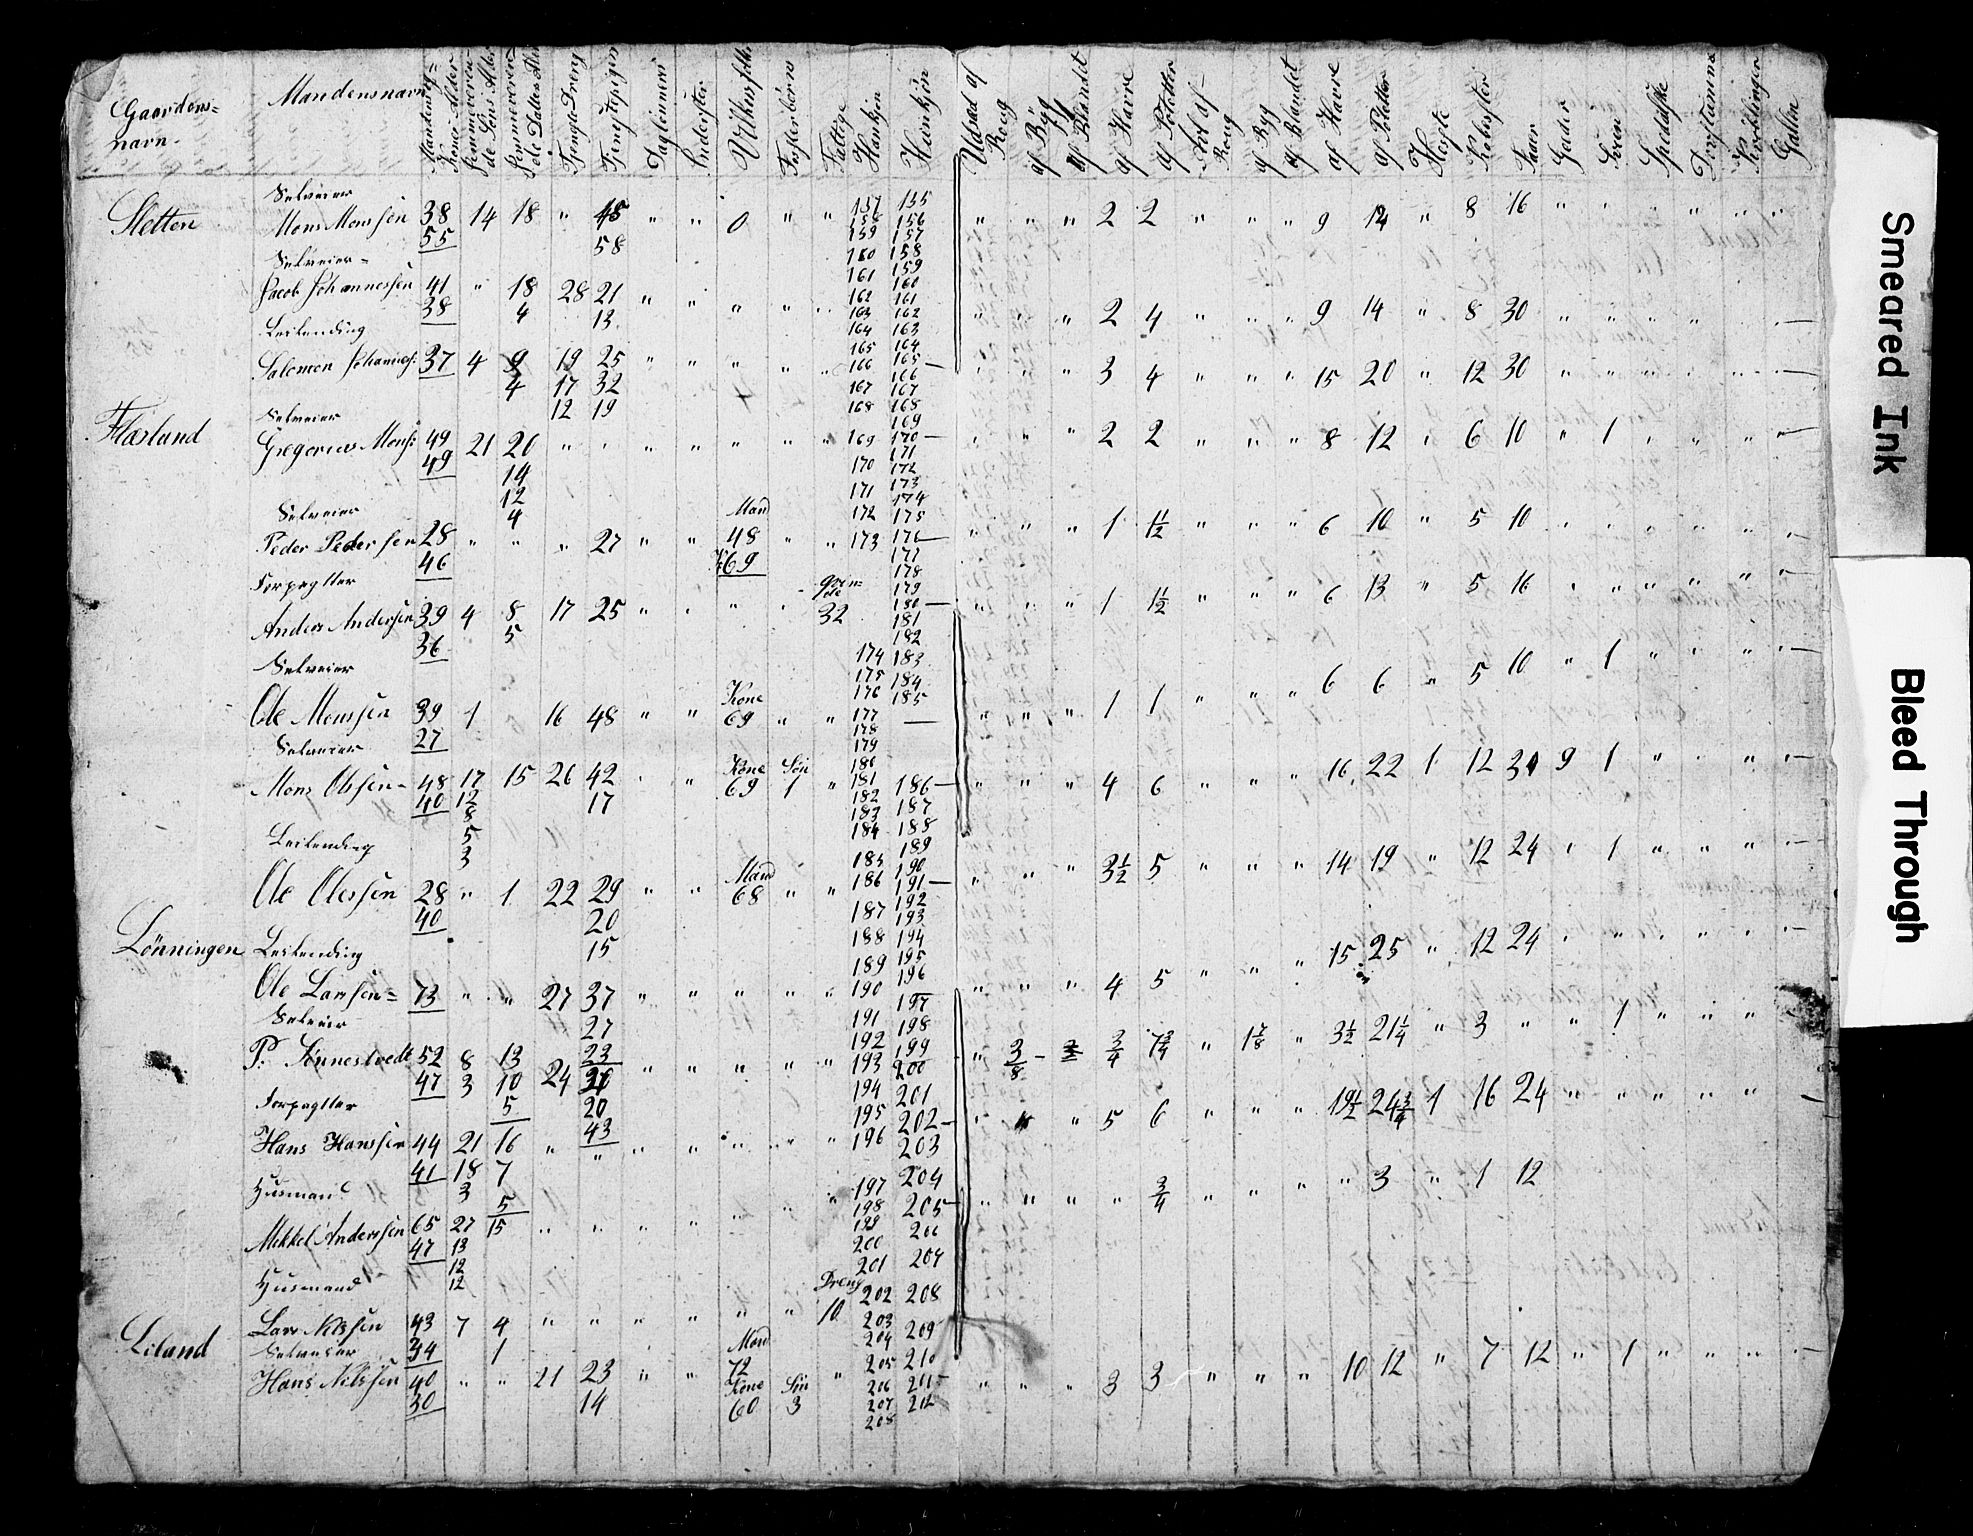 Gaardens=
navn.
Mandensnavn
Mandens og=
Kones Alder
Hiemmeveren
de Søns Alder
Hiemmeveren
de Datters Alder
Tjenste Dreng
Tjenstepigen
Inderster
Fosterbørn
Fattige
Hankjøn
Qvinkjøn
Udsæd af
Roug
af Byg
af Blandet
af Havre
af Potetter
Avl af
Roug
af Byg
af Blandet
af Havre
af Potetter
Heste
Faar
Geder
Sviin
Spedalske
Døvstumme
Krøblinger
Galen
Sletten
Selveier
Mons Monsen 38 14 18 " 45 " " 0 " " " " " 2 2 " " " 9 12 " 8 16
55 58
Selveier=
Jacob Johannessen 41 " 18 28 21 " " " " " " " " 2 4 " " " 9 14 " 8 30
38 4 13
Leilending
Salomon Johannes: 37 4 9 19 25 " " " " " " " " 3 4 " " " 15 20 " 12 30
4 17 32
12 19
Flæsland
Selveier
Gregorius Mons: 49 21 20 " " " " " " " " " " 2 2 " " " 8 12 " 6 10 " 1
49 14
12
4
Selveier
Peder Pedersen 28 " " " 27 " " Mand 48 " " " " " 1 1½ " " " 6 10 " 5 10
46 K: 69
Forpagter
Anders Andersen 39 4 8 17 25 " " " " 32 " " " 1 1½ " " " 6 13 " 5 16
36 5
Selveier
Ole Monssen 39 1 16 48 " " Kone 69 " " " " " 1 1 " " " 6 6 " 5 10 " 1
27
Selveier
Mons Olssen 48 17 15 26 42 " " Kone 69 Søn 1 " " " " 4 6 " " " 16 22 1 12 30 9 1
40 12 17
8
5
3
Leilending
Ole Olessen 28 " 1 22 29 " " Mand 68 " " " " " 3½ 5 " " " 14 19 " 12 24 " 1
40 20
15
Lønningen
Leilending
Ole Larssen= 73 " " 27 37 " " " " " " " " 4 5 " " " 15 25 " 12 24
27
23
Selveier
P. Sønnestvedt 52 8 13 24 30 " " " " " " 3/8 ¾ 7¾ " 1⅞ " 3½ 21¼ " 3 " " 1
47 3 10 20
5 43
Forpagter
Hans Hanssen 44 21 16 " " " " " " " " " " 5 6 " " " 19½ 24¾ 1 16 24
41 18 7
3 5
Husmand
Mikkel Anderssen 65 27 15 " " " " " " " " " " " ¾ " " " " 3 " 1 12
47 13
12
12
Husmand
Lars Nilssen 43 7 4 " " " " " " Dreng 10
34 1
Liland
Selveier
Hans Nilssen 40 " " 21 23 " " Mand 72 " " " " 3 3 " " " 10 12 " 7 12 " 1
30 14 Kone 60 Søn 3
157 155
158 156
159 157
160 158
161 159
162 160
163 161
164 162
165 163
166 164
167 165
168 166
169 167
170 168
171 169
172 170
173 171
174 172
175 173
176 174
177 175
178 176
179 177
180 178
181 179
182 180
183 181
184 182
185 183
186 184
187 185
188 186
189 187
190 188
191 189
192 190
193 191
194 192
195 193
196 194
197 195
198 196
199 197
200 198
201 199
202 200
203 201
204 202
205 203
206 204
207 205
208 206
207
208
209
210
211
212
Smeared Ink
Bleed Through